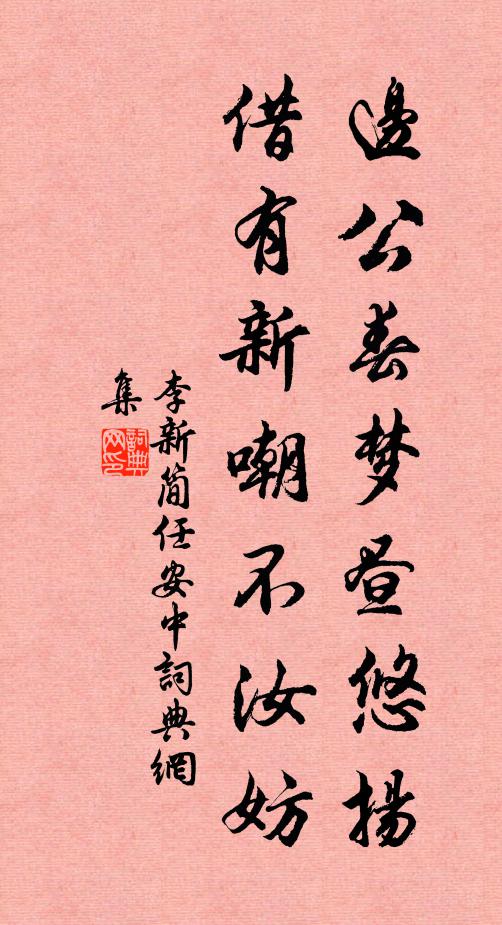 邊公春梦昼悠揚
借有新嘲不汝妨
李新简任安中詞典網
集
詞典网印